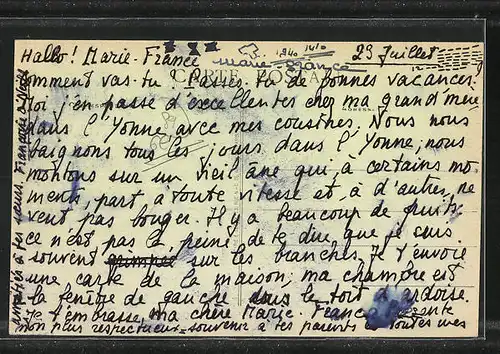 Hallo! Marie-France
29 Juillet
Marie France
CARTE POSTALE
Comment vas-tu. Passes-tu de bonnes vacances.
Moi j'en passe d'excellentes chez ma grand'mère
dans l'Yonne avec mes cousines. Nous nous
baignons tous les jours dans l'Yonne, nous
montons sur un vieil âne qui, à certains mo-
ments, part à toute vitesse et, à d'autres, ne
veut pas bouger. Il y a beaucoup de fruits,
ce n'est pas la peine de te dire que je suis
souvent sur les branches. Je t'envoie
une carte de la maison; ma chambre est
la fenêtre de gauche sous le toit d'ardoise.
Je t'embrasse, ma chère Marie-France
mon plus respectueux souvenir à tes parents toutes mes
amitiés à tes sœurs. Françoise